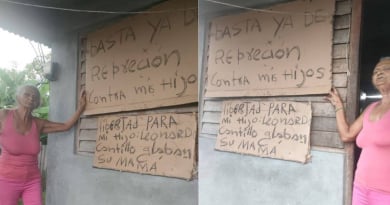 BASTA YA DE
REPRECION
CONTRA MÉ HIJOS
LIBERTAD PARA
MI HIJO LEONARD
CANTILLO GLABAY
SU MAMÁ
BASTA YA DE
REPRECION
CONTRA ME HIJOS
LIBERTAD PARA
MI HIJO LEONARD
CANTILLO GLABAY
SU MAMÁ